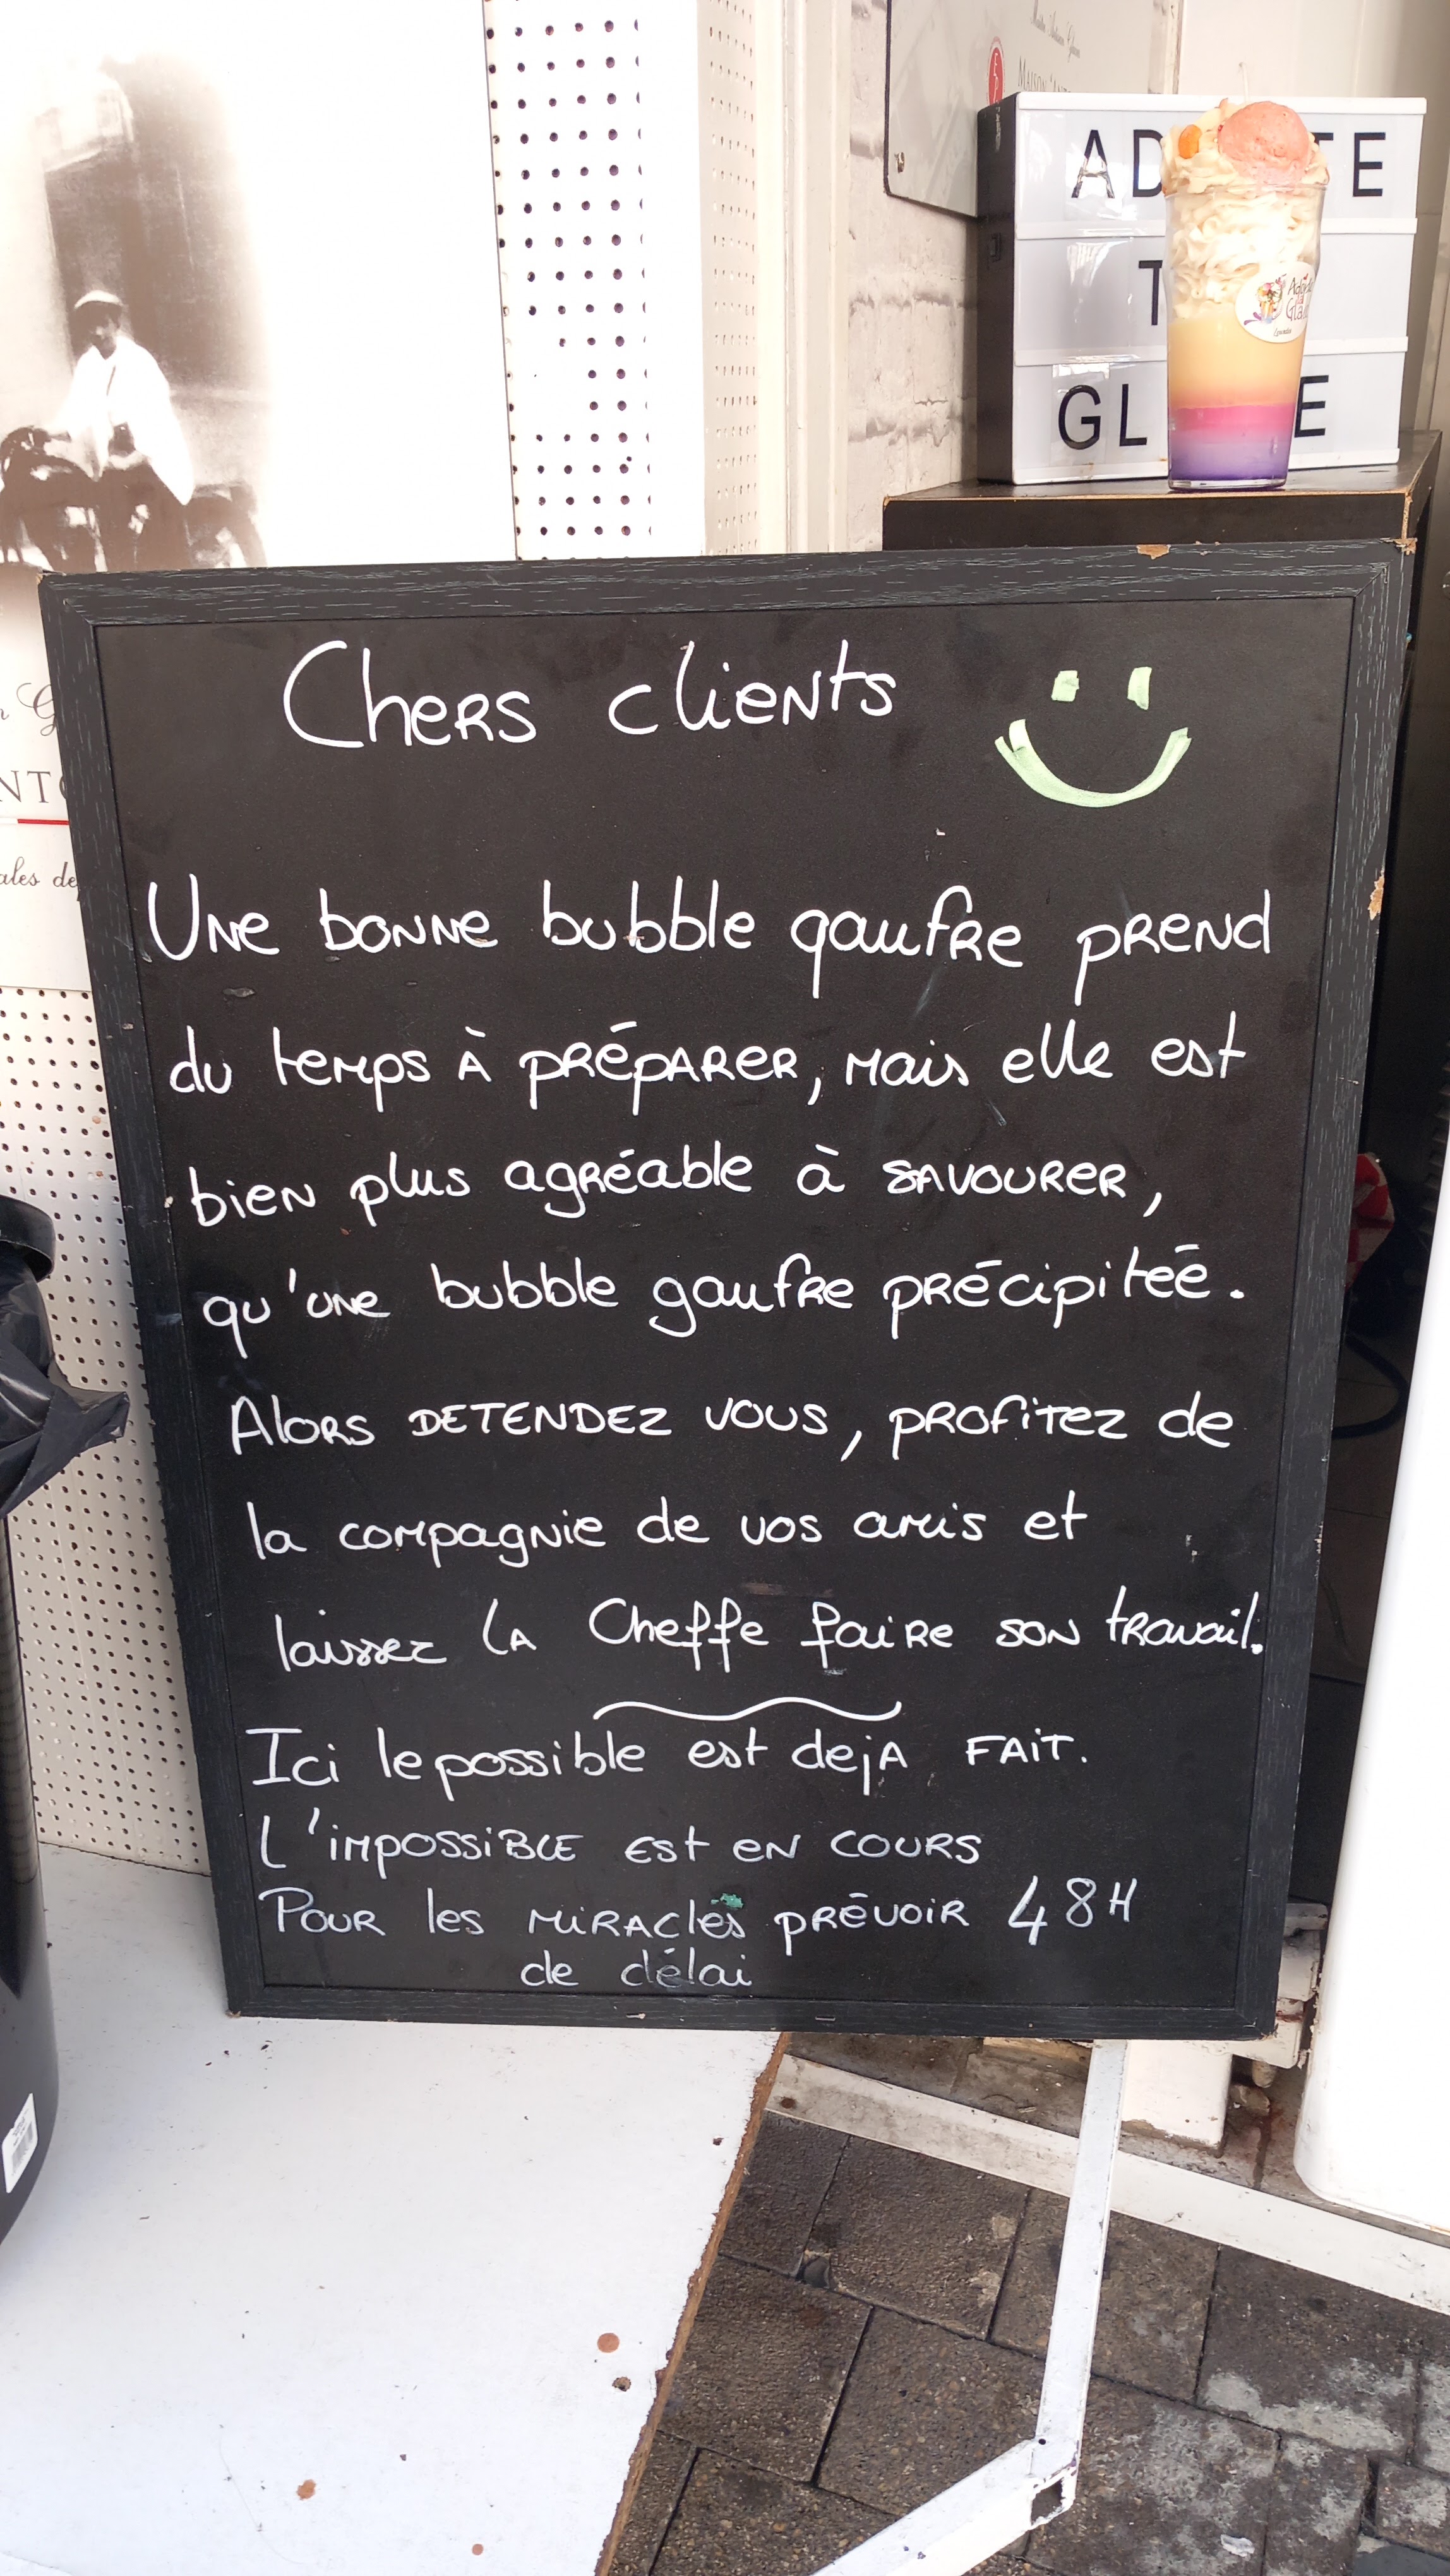 MAISON
AD TE
T
GL E
Chers clients
Une bonne bubble gaufre prend
du temps à préparer, mais elle est
bien plus agréable à savourer,
qu'une bubble gaufre précipiteé.
Alors DETENDEZ VOUS, profitez de
la compagnie de vos amis et
laissez la Cheffe faire son travail.
Ici le possible est deja FAIT.
L'impossible est en cours
Pour les miracles prévoir 48H
de délai